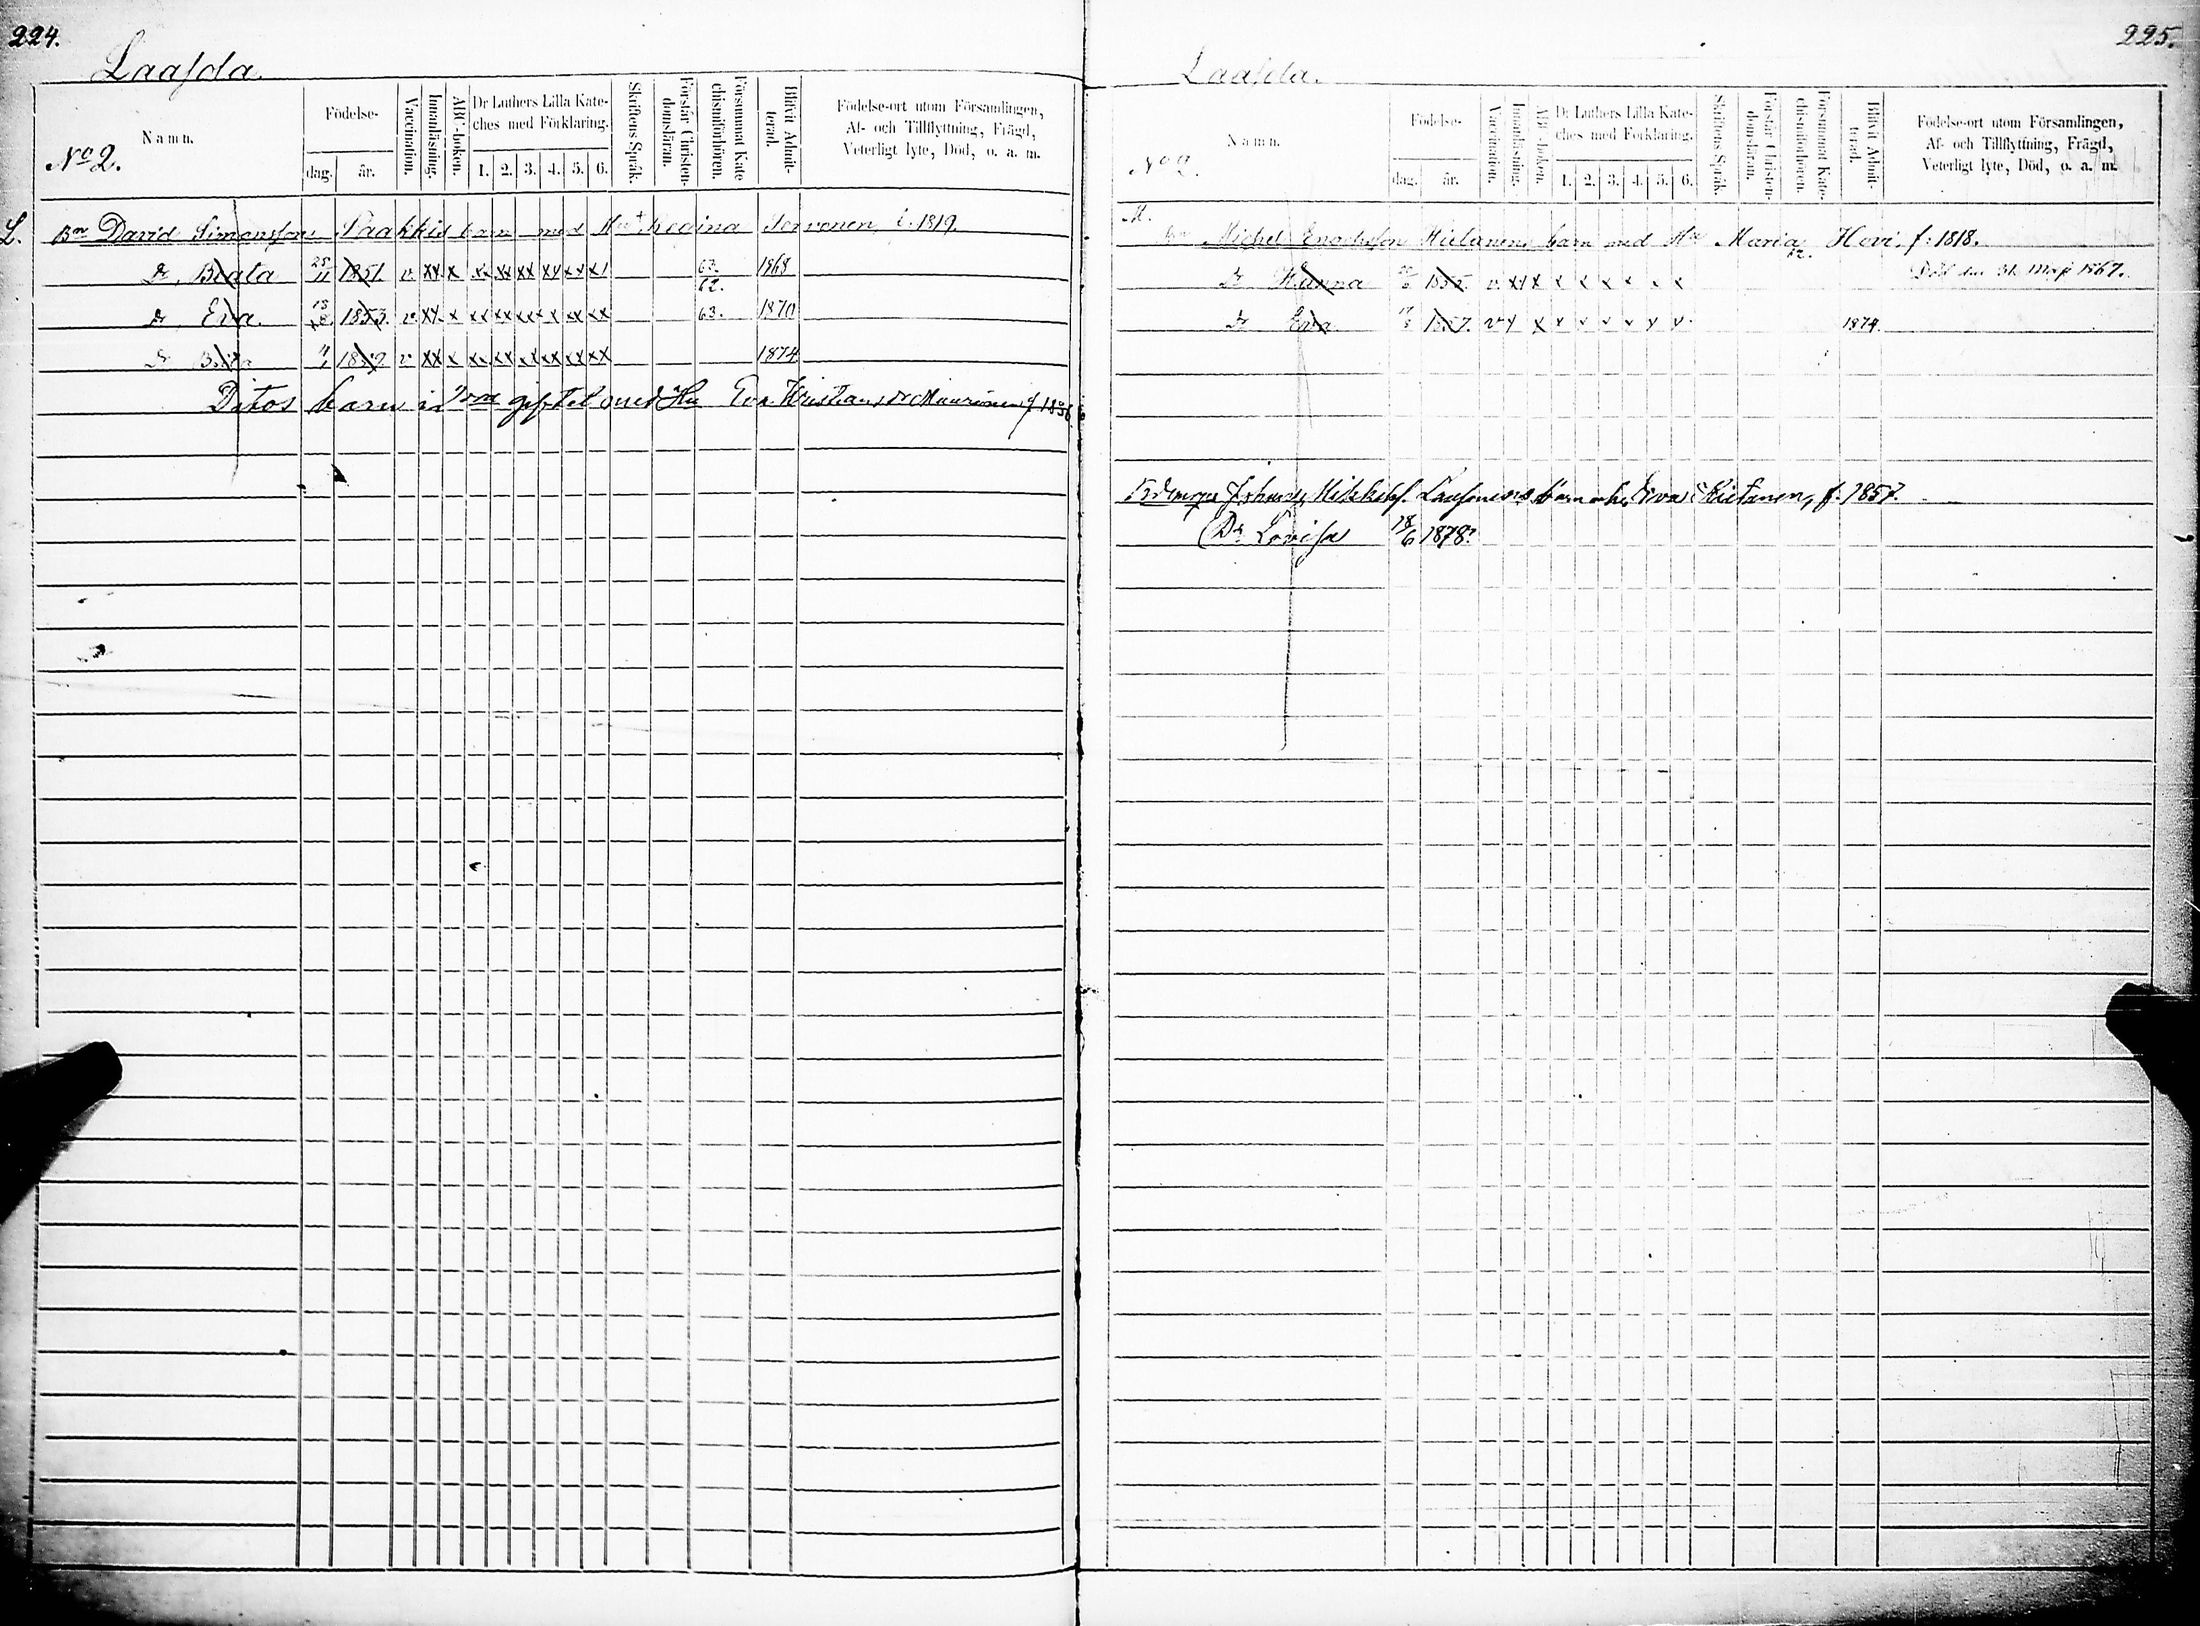 224.
Laasola.
Namn.
No 2.
Födelse-
dag.
år.
Vaccination.
Innanläsning.
ABC-boken.
Dr Luthers Lilla Kate-
ches med Förklaring.
1. 2. 3. 4. 5. 6.
Skriftens Språk.
Förstår Christen-
domsläran.
Försummat Kate-
chismiförhören.
Blifvit Admit-
terad.
Födelse-ort utom Församlingen,
Af- och Tillflyttning, Frägd,
Veterligt lyte, Död, o. a. m.
L. Bn David Simonsson Paakkis barn med Hu Regina f. 1819.
Dr Beata 25/11 1851. v. xx x xx xx xx xx xx x1 63. 62. 1868
Dr Eva. 1853. v. xx. x xx xx xx x xx xx 63. 1870
Dr v xx x xx xx xx xx xx xx 1874
Ditos barn i giftet med Hu Eva
225.
Laasola.
Namn.
No 2.
Födelse-
dag.
år.
Vaccination.
Innanläsning.
ABC-boken.
Dr Luthers Lilla Kate-
ches med Förklaring.
1. 2. 3. 4. 5. 6.
Skriftens Språk.
Förstår Christen-
domsläran.
Försummat Kate-
chismiförhören.
Blifvit Admit-
terad.
Födelse-ort utom Församlingen,
Af- och Tillflyttning, Frägd,
Veterligt lyte, Död, o. a. m.
Michel Hietanens barn med Hu Maria Hovi, f: 1818.
Dr Hanna 1855. v. xx x x x x x x x Död den 31 Maji 1867.
Dr Eva 1857. v x x x x x x x x 1874.
Johannes barn Eva Hietanen, f. 1857.
Dr Lovisa 18/6 1878.